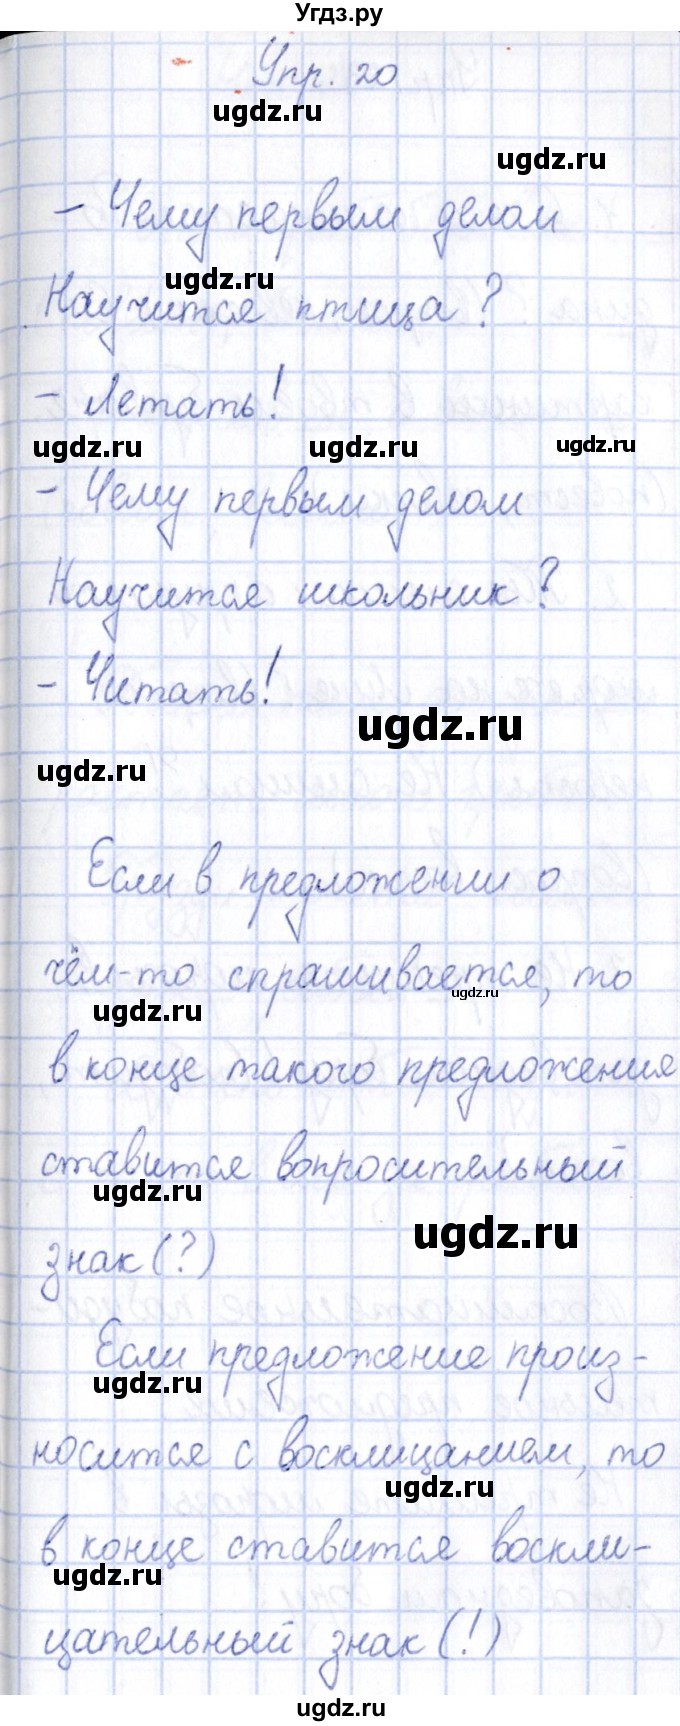 Угдз.ру
Упр. 20
ugdz.ru
ugdz.ru
- Чему первым делом
ugdz.ru
Научится птица?
- Летать!
ugdz.ru ugdz.ru ugdz.ru
- Чему первым делом
Научится школьник?
- Читать!
ugdz.ru
ugdz.ru
Если в предложении о
чём-то спрашивается, то
ugdz.ru
ugdz.ru
в конце такого предложения
ставится вопросительный
ugdz.ru
ugdz.ru
знак (?)
Если предложение произ-
ugdz.ru
носится с восклицанием, то
ugdz.ru
в конце ставится воскли-
ugdz.ru
цательный знак (!)
ugdz.ru